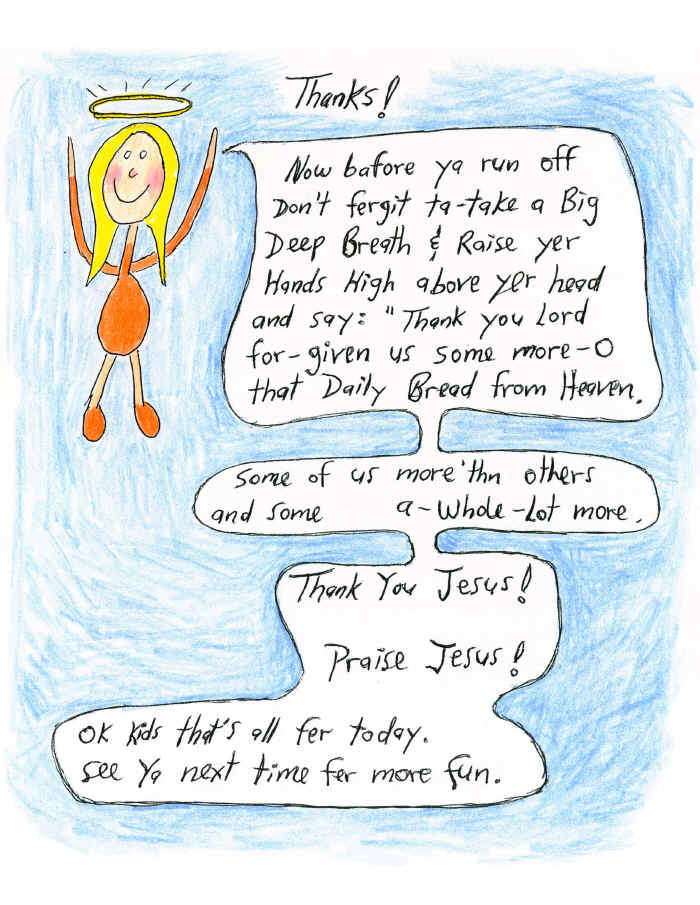 Thanks!
Now bafore ya run off
Don't fergit ta-take a Big
Deep Breath & Raise yer
Hands High above yer head
and say: "Thank you Lord
for-given us some more-O
that Daily Bread from Heaven.
some of us more'thn others
and some a-whole-Lot more.
Thank You Jesus!
Praise Jesus!
OK kids that's all fer today.
see ya next time fer more fun.